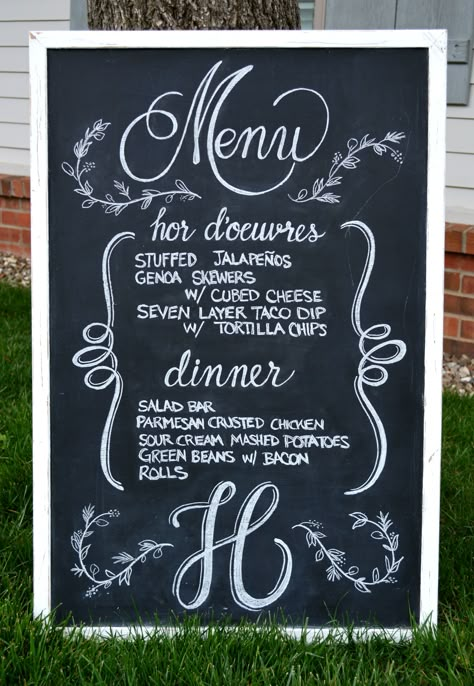 Menu
hor d'oeuvres
STUFFED JALAPEÑOS
GENOA SKEWERS
W/ CUBED CHEESE
SEVEN LAYER TACO DIP
W/ TORTILLA CHIPS
dinner
SALAD BAR
PARMESAN CRUSTED CHICKEN
SOUR CREAM MASHED POTATOES
GREEN BEANS W/ BACON
ROLLS
H